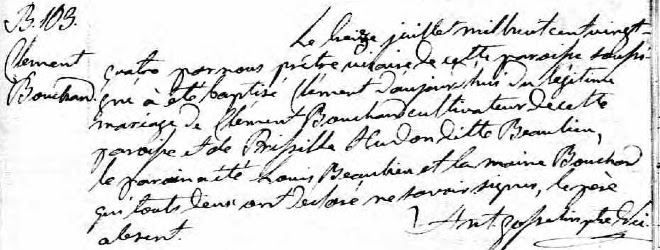 B. 103.
Clement
Bouchard.
Le treize juillet mil huit cent vingt-
quatre par nous prêtre vicaire de cette paroisse soussi-
gné à été baptisé Clement d'aujourd'hui du légitime
mariage de Clement Bouchard cultivateur de cette
paroisse et de Prissille Hudon ditte Beaulieu,
le parain a été Louis Beaulieu et la maraine Bouchard
qui touts deux ont déclaré ne savoir signer, le père
absent.
Ant Gosselin ptre Vic.